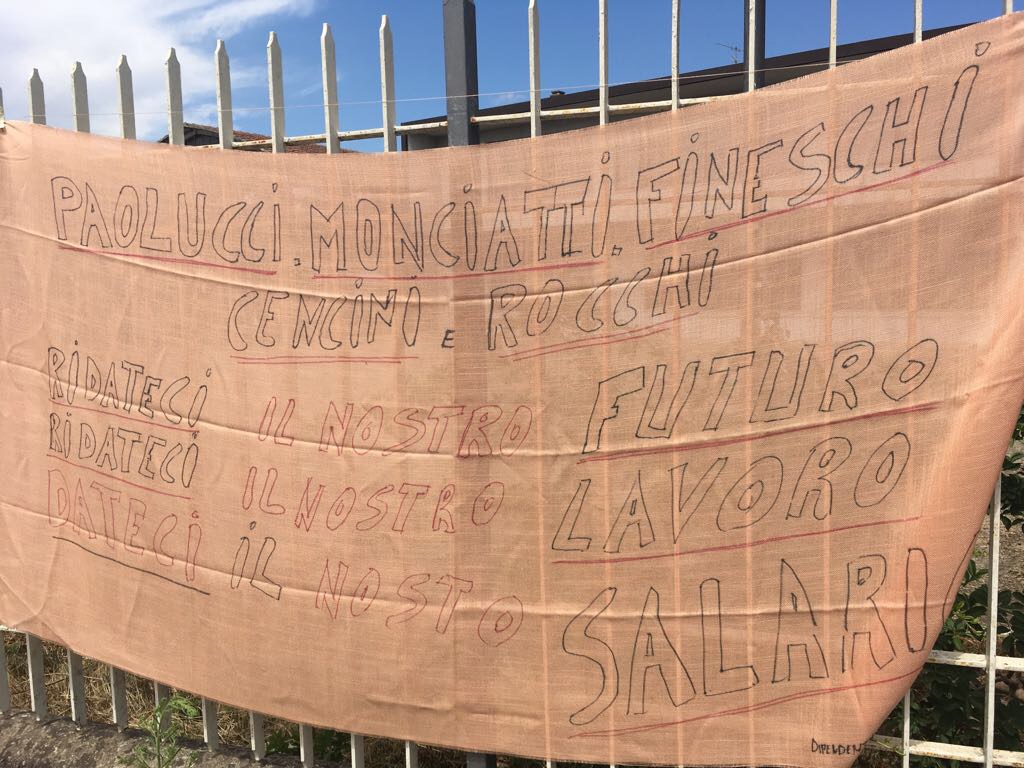 PAOLUCCI. MONCIATTI. FINESCHI
CENCINI E ROCCHI
RIDATECI IL NOSTRO FUTURO
RIDATECI IL NOSTRO LAVORO
DATECI IL NOSTO SALARI
DIPENDEN